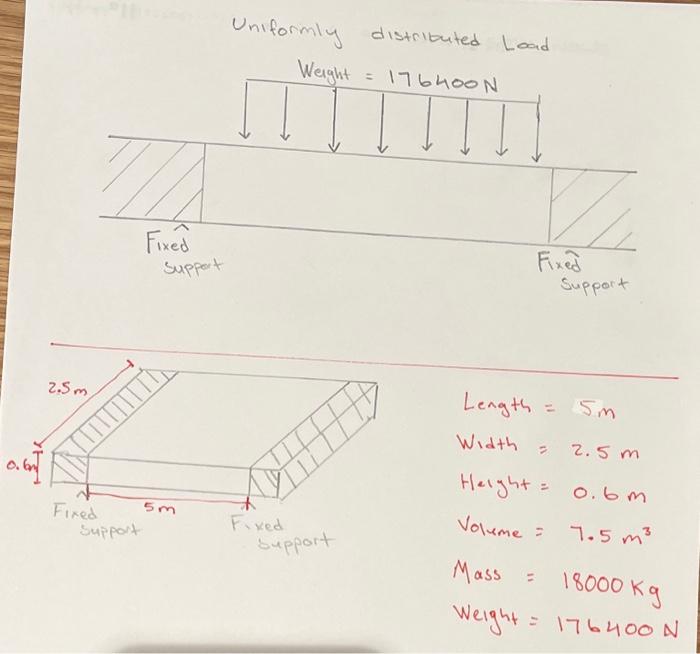 Uniformly distributed Load
Weight = 176400N
Fixed
Support
Fixed
Support
2.5m
0.6m
5m
Fixed
Support
Fixed
Support
Length = 5m
Width = 2.5 m
Height = 0.6 m
Volume = 7.5 m³
Mass = 18000 Kg
Weight = 176400 N